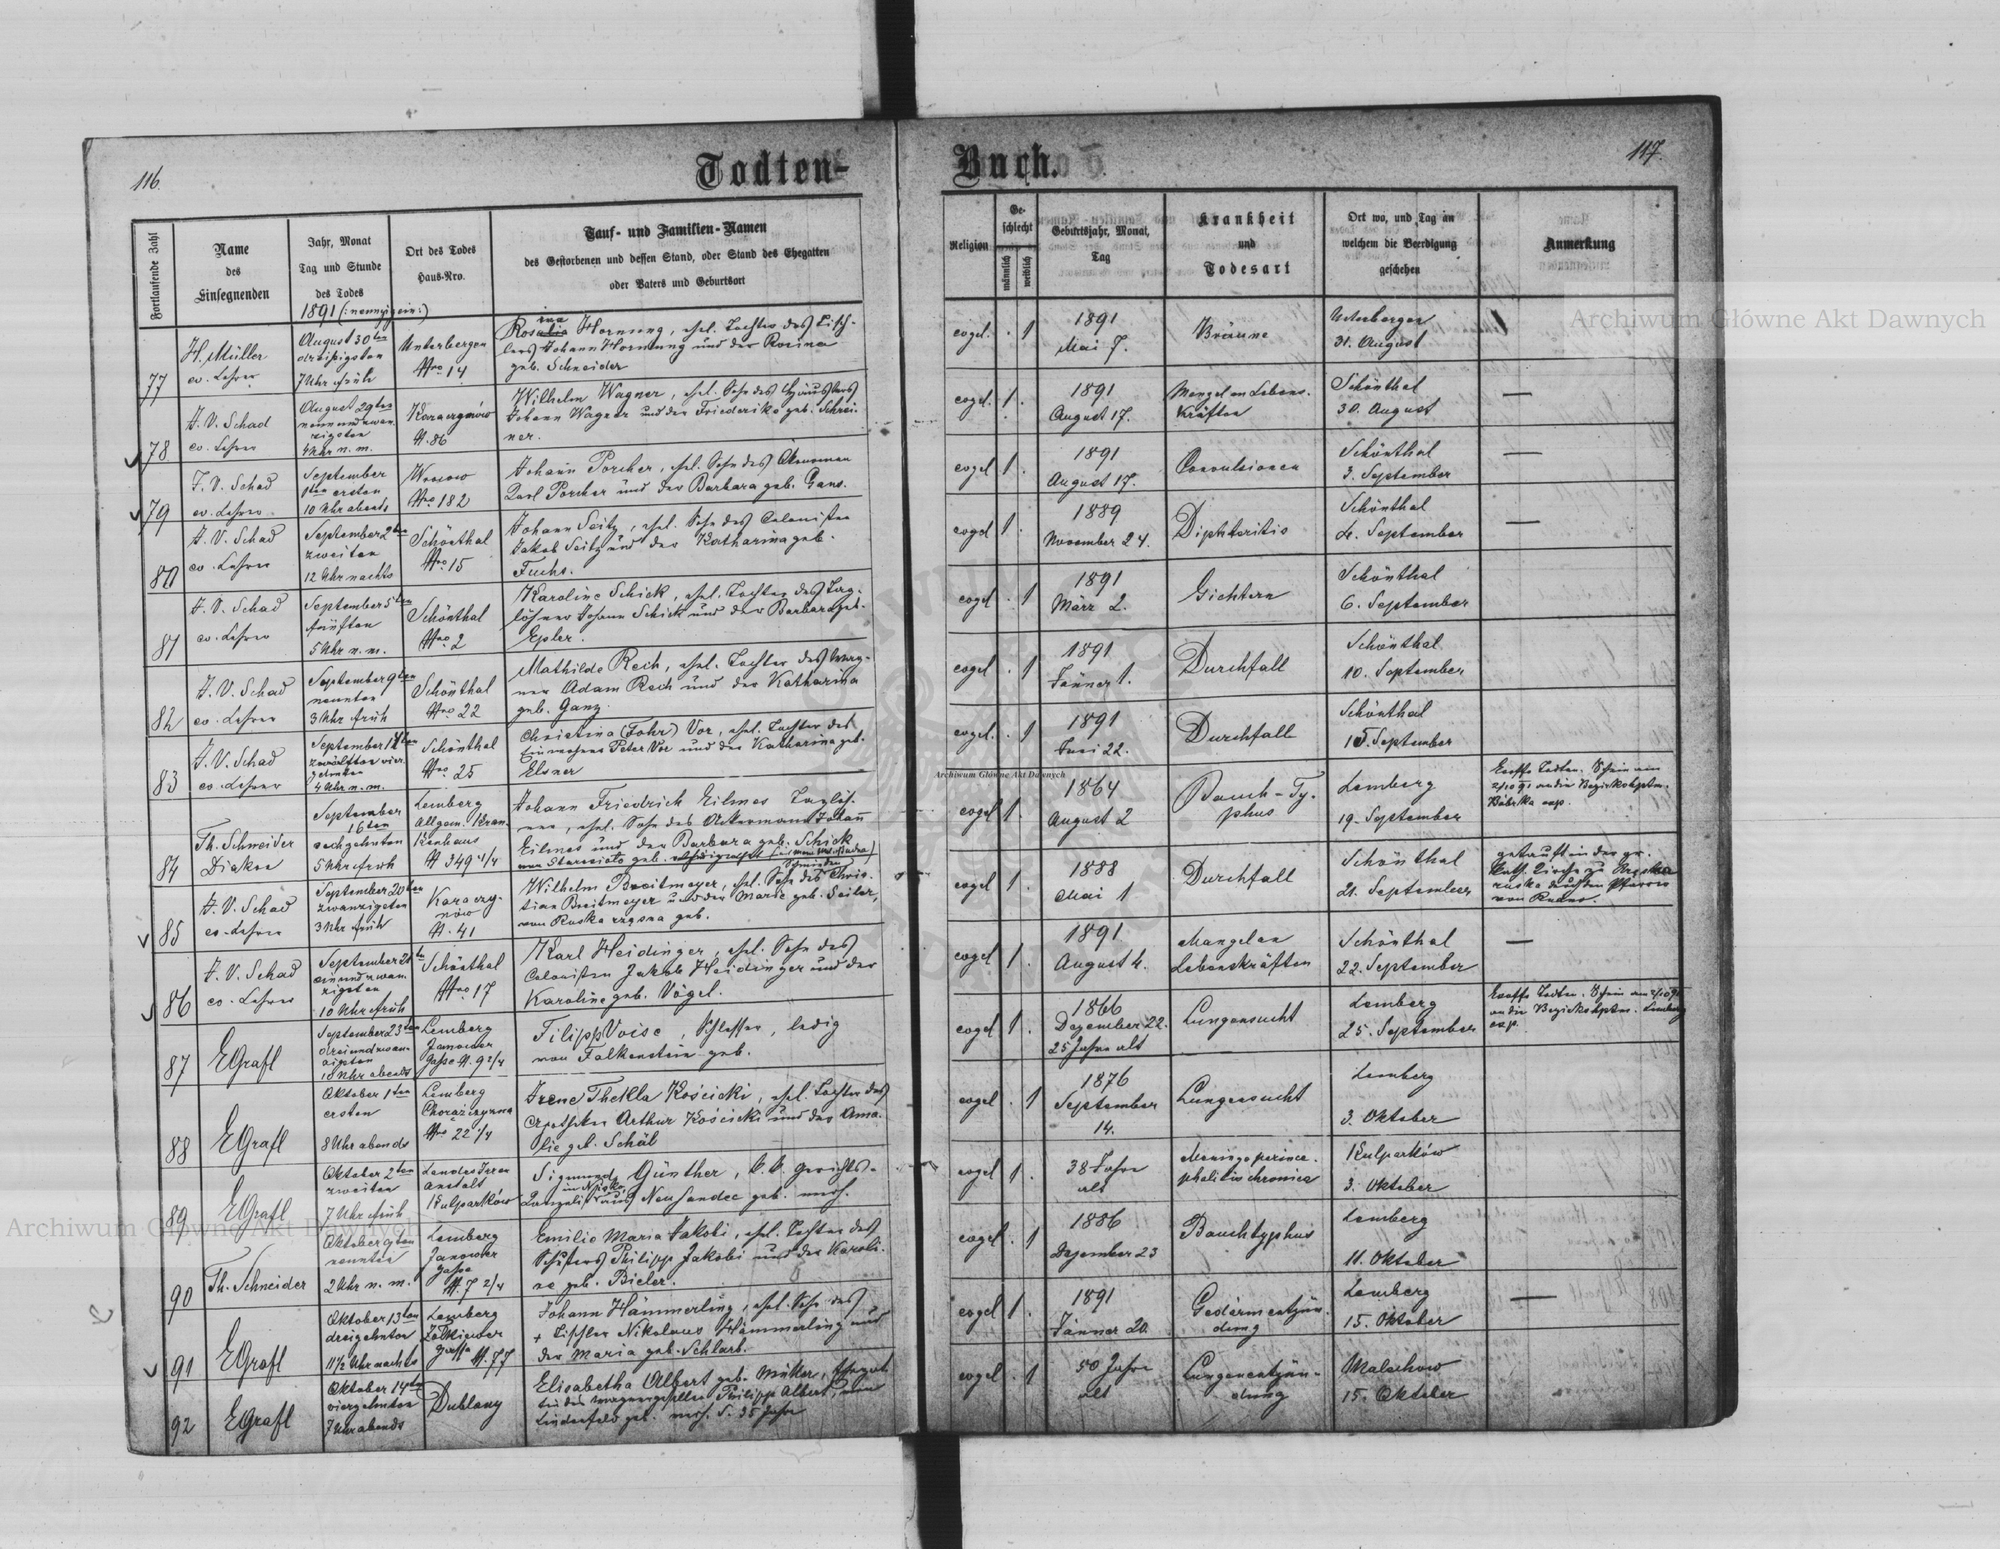 116
Todten-
Buch.
117.
Fortlaufende Zahl
Name
des
Einsegnenden
Jahr, Monat
Tag und Stunde
des Todes
Ort des Todes
Haus-Nro.
Tauf- und Familien-Namen
des Gestorbenen und dessen Stand, oder Stand des Ehegatten
oder Vaters und Geburtsort
Religion
Ge-
schlecht
männlich
weiblich
Geburtsjahr, Monat,
Tag
Krankheit
und
Todesart
Ort wo, und Tag an
welchem die Beerdigung
geschehen
Anmerkung
1891
77
H. Müller
ev. Lehrer
August 30ten
dreißigsten
7 Uhr früh
Unterbergen
Nro 14
Rosalia ina Hornung, ehel. Tochter des Tisch-
lers Johann Hornung und der Rosina
geb. Schneider
evgel.
1
1891
Mai 7.
Bräune
Unterbergen
31. August
78
J. V. Schad
ev. Lehrer
August 29ten
neunundzwan-
zigsten
4 Uhr n. m.
N. 86
Wilhelm Wagner, ehel. Sohn des
Johann Wagner und der Friederike geb. Schrei-
ner.
evgel.
1.
1891
August 17.
Mangel an Lebens-
kräften
Schönthal
30. August
—
79
J. V. Schad
ev. Lehrer
September
1ten ersten
10 Uhr abends
Nro 182
Johann Porcher, ehel. Sohn des Ökonomen
Karl Porcher und der Barbara geb. Gans.
evgel
1.
1891
August 17.
Convulsionen
Schönthal
3. September
—
80
J. V. Schad
ev. Lehrer
September 2ten
zweiten
12 Uhr nachts
Schönthal
Nro 15
Johann Seitz, ehel. Sohn des Colonisten
Jakob Seitz und der Katharina geb.
Fuchs.
evgel
1.
1889
November 24.
Diphteritis
Schönthal
4. September
—
81
J. V. Schad
ev. Lehrer
September 5ten
fünften
5 Uhr n. m.
Schönthal
Nro 2
Karoline Schick, ehel. Tochter des Tag-
löhner Johann Schick und der Barbara geb.
Epler.
evgel
1
1891
März 2.
Gichtern
Schönthal
6. September
82
J. V. Schad
ev. Lehrer
September 9ten
neunten
3 Uhr früh
Schönthal
Nro 22
Mathilde Rech, ehel. Tochter des Wag-
ner Adam Rech und der Katharina
geb. Ganz.
evgel
1
1891
Jänner 1.
Durchfall
Schönthal
10. September
83
J. V. Schad
ev. Lehrer
September 14ten
4 Uhr n. m.
Schönthal
Nro 25
Christina (Fohr) Vor, ehel. Tochter des
Einwohner Peter Vor und der Katharina geb.
Elsner
evgel.
1
1891
Juni 22.
Durchfall
Schönthal
15. September
84
Th. Schneider
Diakon
September
16ten
sechzehnten
5 Uhr früh
Lemberg
Allgem. Kran-
kenhaus
N 349 4/4
Johann Friedrich Eilmes Taglöh-
ner, ehel. Sohn des Ackermann Johann
Eilmes und der Barbara geb. Schick
evgel
1.
1864
August 2
Bauch-Ty-
phus
Lemberg
19. September
85
J. V. Schad
ev. Lehrer
September 20ten
zwanzigsten
3 Uhr früh
N. 41
Wilhelm Breitmeyer, ehel. Sohn des Schmieden Chris-
tian Breitmeyer und der Marie geb. Seiler,
evgel
1.
1888
Mai 1
Durchfall
Schönthal
21. September
getauft in der gr.
86
J. V. Schad
ev. Lehrer
September 21ten
einundzwan-
zigsten
10 Uhr früh
Schönthal
Nro 17
Karl Heidinger, ehel. Sohn des
Colonisten Jakob Heidinger und der
Karoline geb. Vögel.
evgel
1.
1891
August 4.
Mangel an
Lebenskräften
Schönthal
22. September
—
87
E Grafl
September 23ten
dreiundzwan-
zigsten
Uhr abends
Lemberg
Janower
Gasse N. 9 2/4
Filipp Voise, Schlosser, ledig
von Falkenstein geb.
evgel
1.
1866
Dezember 22.
25 Jahre alt
Lungensucht
Lemberg
25. September
88
E Grafl
Oktober 1ten
ersten
8 Uhr abends
Lemberg
Chorążczyzna
Nro 22 1/4
Irene Thekla Kościcki, ehel. Tochter des
Apotheker Arthur Kościcki und der Ama-
lie geb. Schäb
evgel
1
1876
September
14.
Lungensucht
Lemberg
3. Oktober
89
E Grafl
Oktober 2ten
zweiten
7 Uhr früh
Landes Irren
anstalt
Kulparków
Sigmund Günther, k. k. Gerichts-
Kanzelist in Nisko aus Neusandec geb. verh.
evgel
1.
38 Jahre
alt
Kulparków
3. Oktober
90
Th. Schneider
Oktober 9ten
neunten
2 Uhr n. m.
Lemberg
Janower
gasse
N. 7 2/4
Emilie Maria Jakobi, ehel. Tochter des
Schusters Philipp Jakobi und der Karoli-
ne geb. Bieler.
evgel.
1
1886
Dezember 23
Bauchtyphus
Lemberg
11. Oktober
91
E Grafl
Oktober 13ten
dreizehnten
11 1/2 Uhr nachts
Lemberg
Zolkiewer
gasse N. 77
Johann Hämmerling, ehel. Sohn des
+ Tischler Nikolaus Hämmerling und
der Maria geb. Schlarb.
evgel
1.
1891
Jänner 20.
Gedärmentzün-
dung
Lemberg
15. Oktober
—
92
E Grafl
Oktober 14ten
vierzehnten
7 Uhr abends
Dublany
Elisabetha Albert geb. Müller, Ehegat-
tin des Wagnergesellen Philipp Albert, von
Lindenfeld geb. verh. s. 35 Jahre
evgel
1
50 Jahre
alt
Lungenentzün-
dung
Malechow
15. Oktober
Archiwum Główne Akt Dawnych
Archiwum Główne Akt Dawnych
Archiwum Główne Akt Dawnych